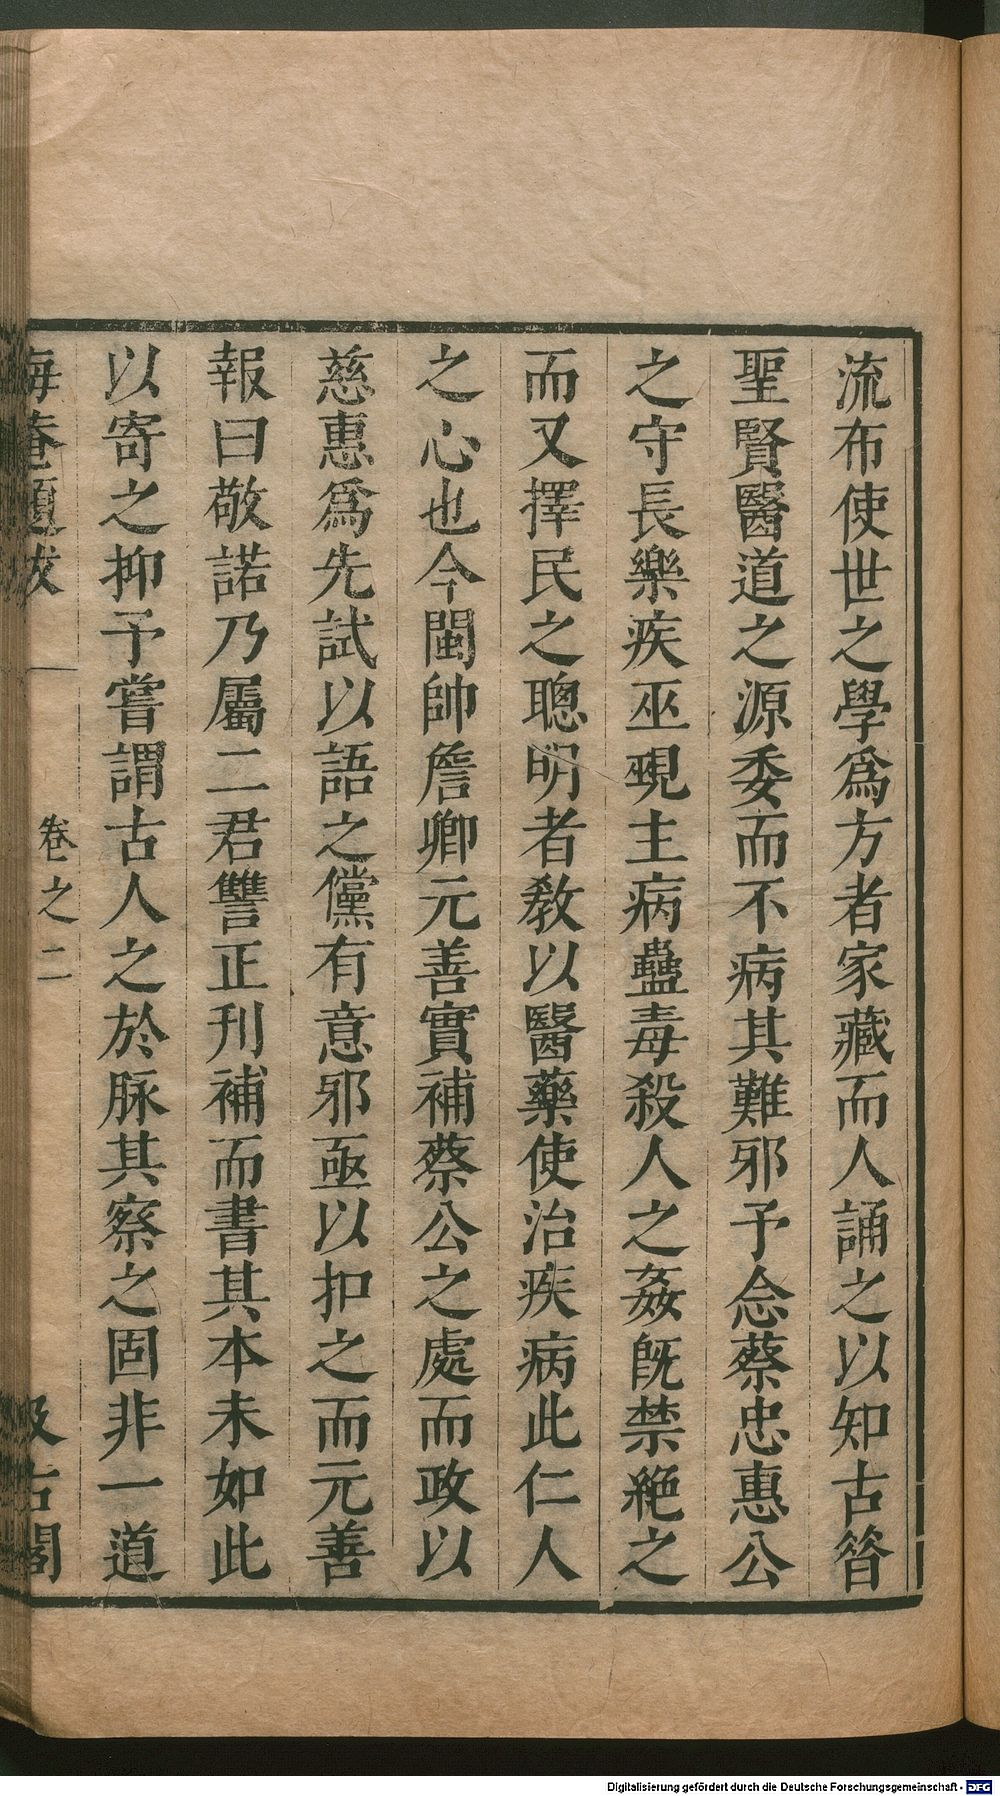 流布使世之學爲方者家藏而人誦之以知古昝
聖賢醫道之源委而不病其難邪予念蔡忠惠公
之守長樂疾巫覡主病蠱毒殺人之姦旣禁絶之
而又擇民之聰明者敎以醫藥使治疾病此仁人
之心也今閩帥詹卿元善實補蔡公之處而政以
慈惠爲先試以語之儻有意邪亟以扣之而元善
報曰敬諾乃屬二君讐正刊補而書其本末如此
以寄之抑予嘗謂古人之於脉其察之固非一道
晦菴題跋 卷之二 汲古閣
Digitalisierung gefördert durch die Deutsche Forschungsgemeinschaft - DFG